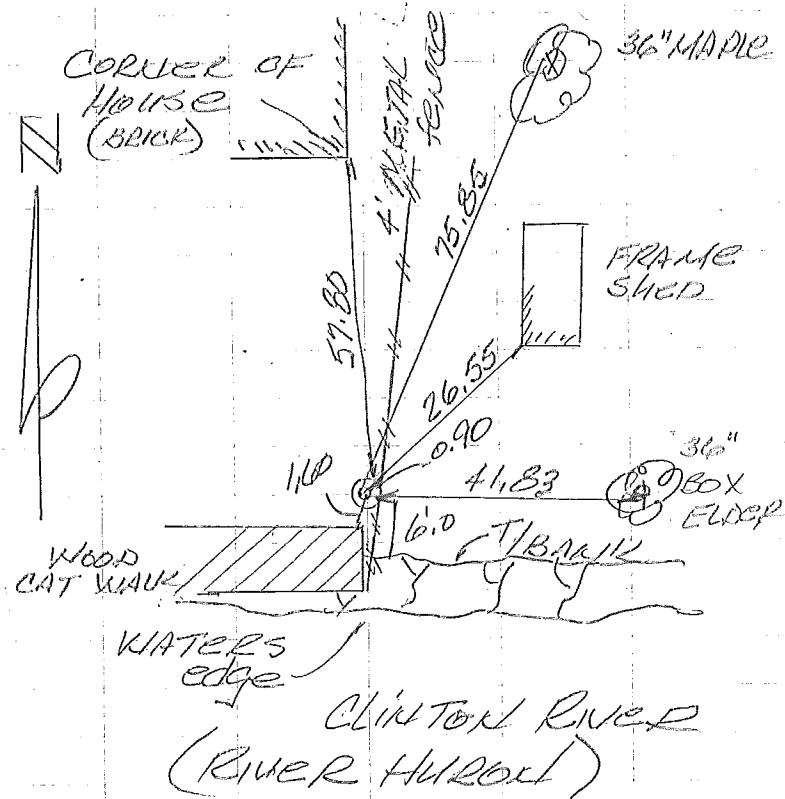 CORNER OF
HOUSE
(BRICK)
N
4' METAL
fence
36" MAPLE
75.85
FRAME
SHED
57.80
26.55
0.90
1.60
41.83
36"
BOX
ELDER
6.0
T/BANK
WOOD
CAT WALK
WATERS
edge
CLINTON RIVER
(RIVER HURON)